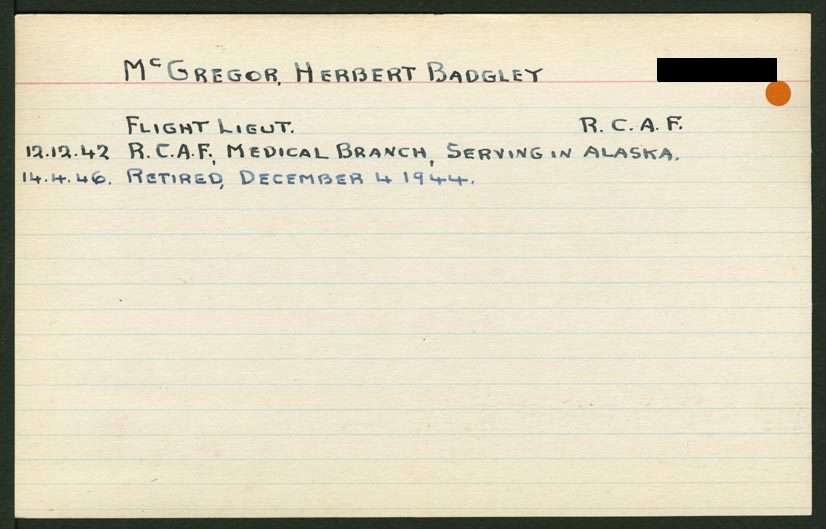 McGREGOR, HERBERT BADGLEY
FLIGHT LIEUT. R.C.A.F.
12.12.42 R.C.A.F., MEDICAL BRANCH, SERVING IN ALASKA.
14.4.46. RETIRED, DECEMBER 4 1944.